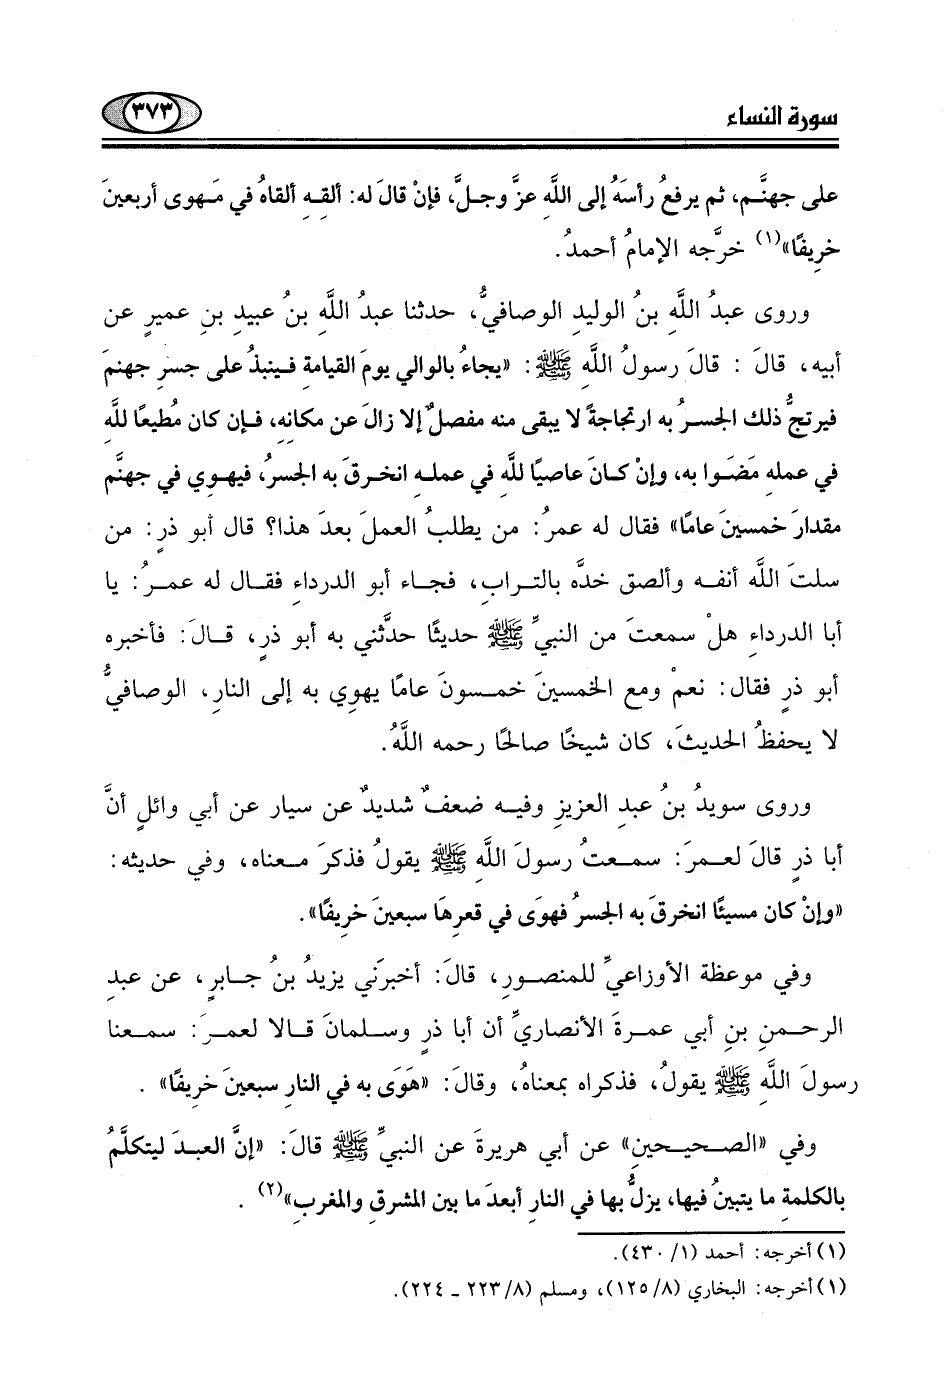 سورة النساء
٣٧٣
على جهنَّم، ثم يرفعُ رأسَهُ إلى اللَّهِ عزَّ وجلَّ، فإنْ قالَ له: ألقِهِ ألقاهُ في مَهوى أربعينَ
خريفًا»(١) خرَّجه الإمامُ أحمدُ.
وروى عبدُ اللَّهِ بنُ الوليدِ الوصافيُّ، حدثنا عبدُ اللَّهِ بنُ عبيدِ بنِ عميرٍ عن
أبيه، قالَ : قالَ رسولُ اللَّهِ ﷺ: «يجاءُ بالوالي يومَ القيامةِ فينبذُ على جسرِ جهنمَ
فيرتجُّ ذلك الجسرُ به ارتجاجةً لا يبقى منه مفصلٌ إلا زالَ عن مكانِهِ، فإن كان مُطيعًا للَّهِ
في عملِهِ مَضَوا به، وإنْ كانَ عاصيًا للَّهِ في عملِهِ انخرقَ به الجسرُ، فيهوِي في جهنَّم
مقدارَ خمسينَ عامًا» فقال له عمرُ: من يطلبُ العملَ بعدَ هذا؟ قال أبو ذرٍ: من
سلتَ اللَّهُ أنفه وألصق خدَّه بالترابِ، فجاء أبو الدرداءِ فقال له عمرُ: يا
أبا الدرداءِ هلْ سمعتَ من النبيِّ ﷺ حديثًا حدَّثني به أبو ذرٍ، قالَ: فأخبره
أبو ذرٍ فقال: نعمْ ومع الخمسينَ خمسونَ عامًا يهوِي به إلى النارِ، الوصافيُّ
لا يحفظُ الحديثَ، كان شيخًا صالحًا رحمه اللَّهُ.
وروى سويدُ بنُ عبدِ العزيزِ وفيه ضعفٌ شديدٌ عن سيارٍ عن أبي وائلٍ أنَّ
أبا ذرٍ قالَ لعمرَ: سمعتُ رسولَ اللَّهِ ﷺ يقولُ فذكرَ معناه، وفي حديثه:
«وإنْ كان مسيئًا انخرقَ به الجسرُ فهوَى في قعرِهَا سبعينَ خريفًا».
وفي موعظةِ الأوزاعيِّ للمنصورِ، قالَ: أخبرَني يزيدُ بنُ جابرٍ، عن عبدِ
الرحمنِ بنِ أبي عمرةَ الأنصاريِّ أن أبا ذرٍ وسلمانَ قالا لعمرَ: سمعنا
رسولَ اللَّهِ ﷺ يقولُ، فذكراه بمعناهُ، وقالَ: «هَوَى به في النارِ سبعينَ خريفًا» .
وفي «الصحيحين» عن أبي هريرةَ عن النبيِّ ﷺ قالَ: «إنَّ العبدَ ليتكلَّمُ
بالكلمةِ ما يتبينُ فيها، يزلُّ بها في النارِ أبعدَ ما بين المشرقِ والمغربِ»(٢) .
(١) أخرجه: أحمد (١/ ٤٣٠).
(١) أخرجه: البخاري (٨/ ١٢٥)، ومسلم (٨/ ٢٢٣ ـ ٢٢٤).